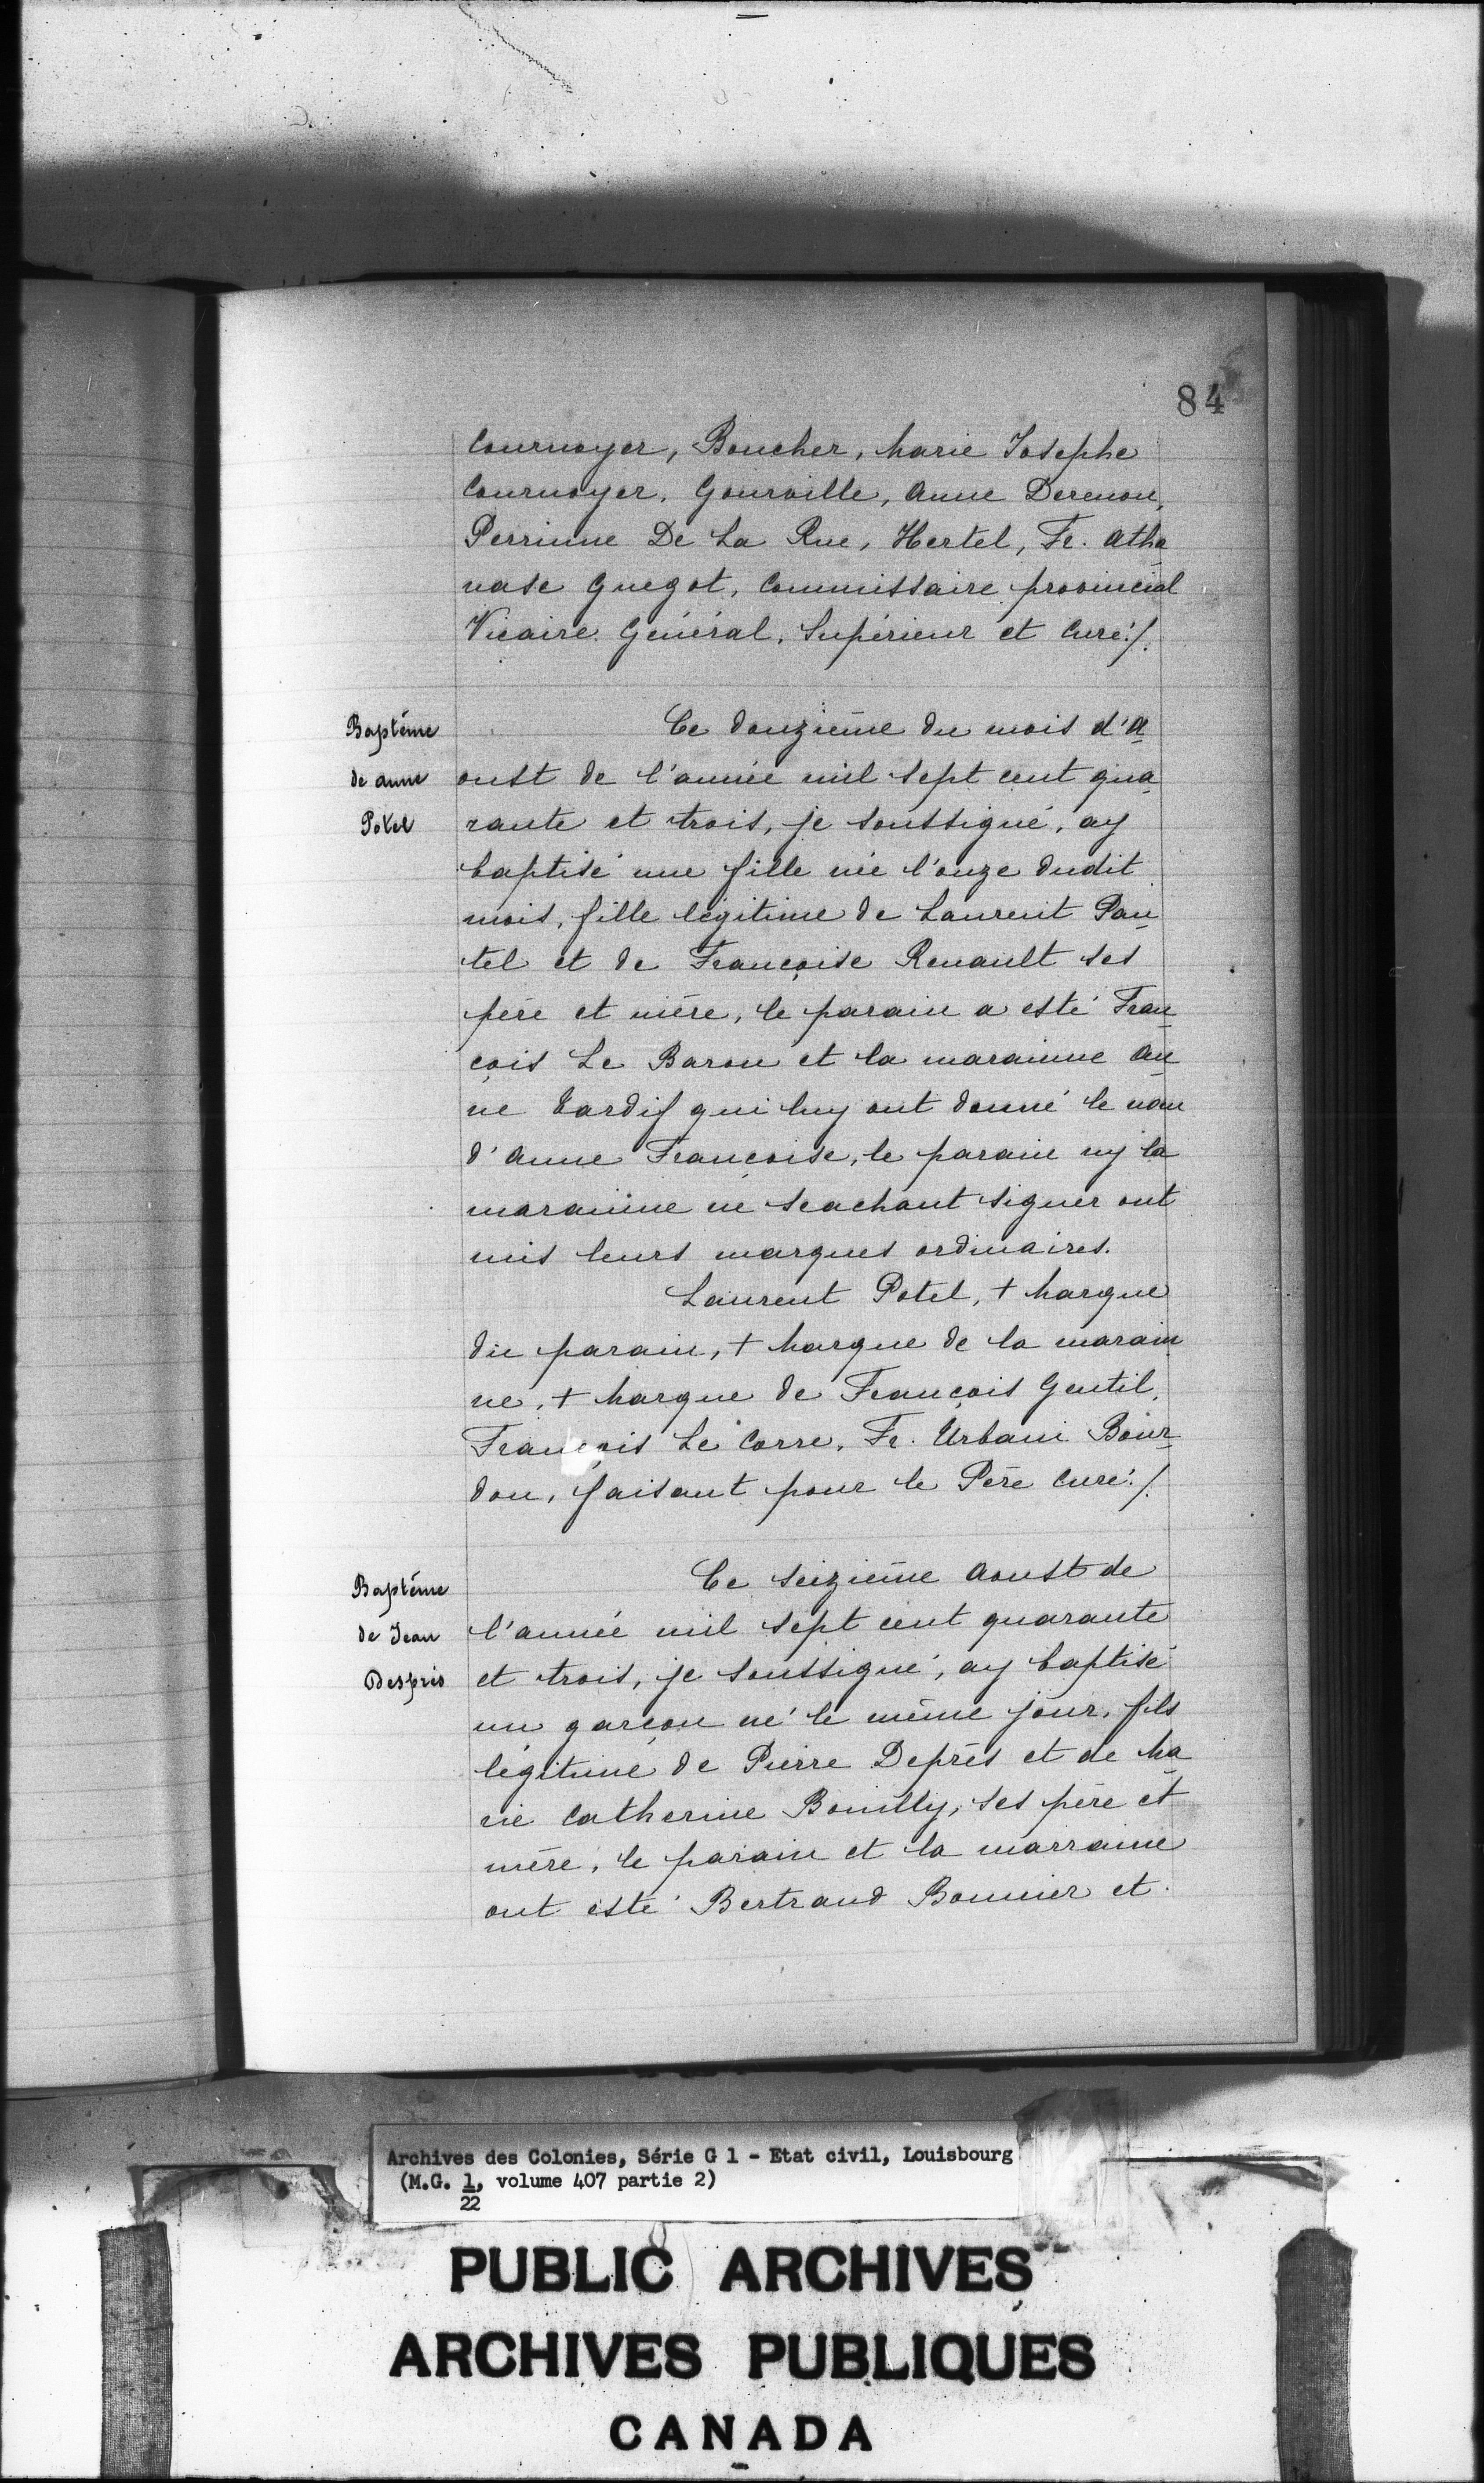 84
Cournoyer, Boucher, Marie Josephe
Cournoyer, Gourville, Anne Derenou,
Perrinne De La Rue, Hertel, Fr. Atha
nase Guegot, Commissaire provincial
Vicaire Général, Supérieur et Curé./.
Baptême
de Anne
Potel
Ce douzième du mois d'A
oust de l'année mil sept cent qua
rante et trois, je soussigné, ay
baptisé une fille née l'onze dudit
mois, fille légitime de Laurent Pau
tel et de Françoise Renault ses
père et mère, le parain a esté Fran
çois Le Baron et la marainne An
ne Tardif qui luy ont donné le nom
d'Anne Françoise, le parain ny la
marainne ne scachant signer ont
mis leurs marques ordinaires.
Laurent Potel, + Marque
du parain, + Marque de la marain
ne, + Marque de François Gentil,
François Le Corre, Fr. Urbain Bour
don, faisant pour le Père Curé./.
Baptême
de Jean
Desprès
Ce seizième Aoust de
l'année mil sept cent quarante
et trois, je soussigné, ay baptisé
un garçon né le même jour, fils
légitime de Pierre Deprès et de Ma
rie Catherine Bouilly, ses père et
mère, le parain et la marraine
ont esté Bertrand Bonnier et
Archives des Colonies, Série G 1 - Etat civil, Louisbourg
(M.G. 1, volume 407 partie 2)
22
PUBLIC ARCHIVES
ARCHIVES PUBLIQUES
CANADA